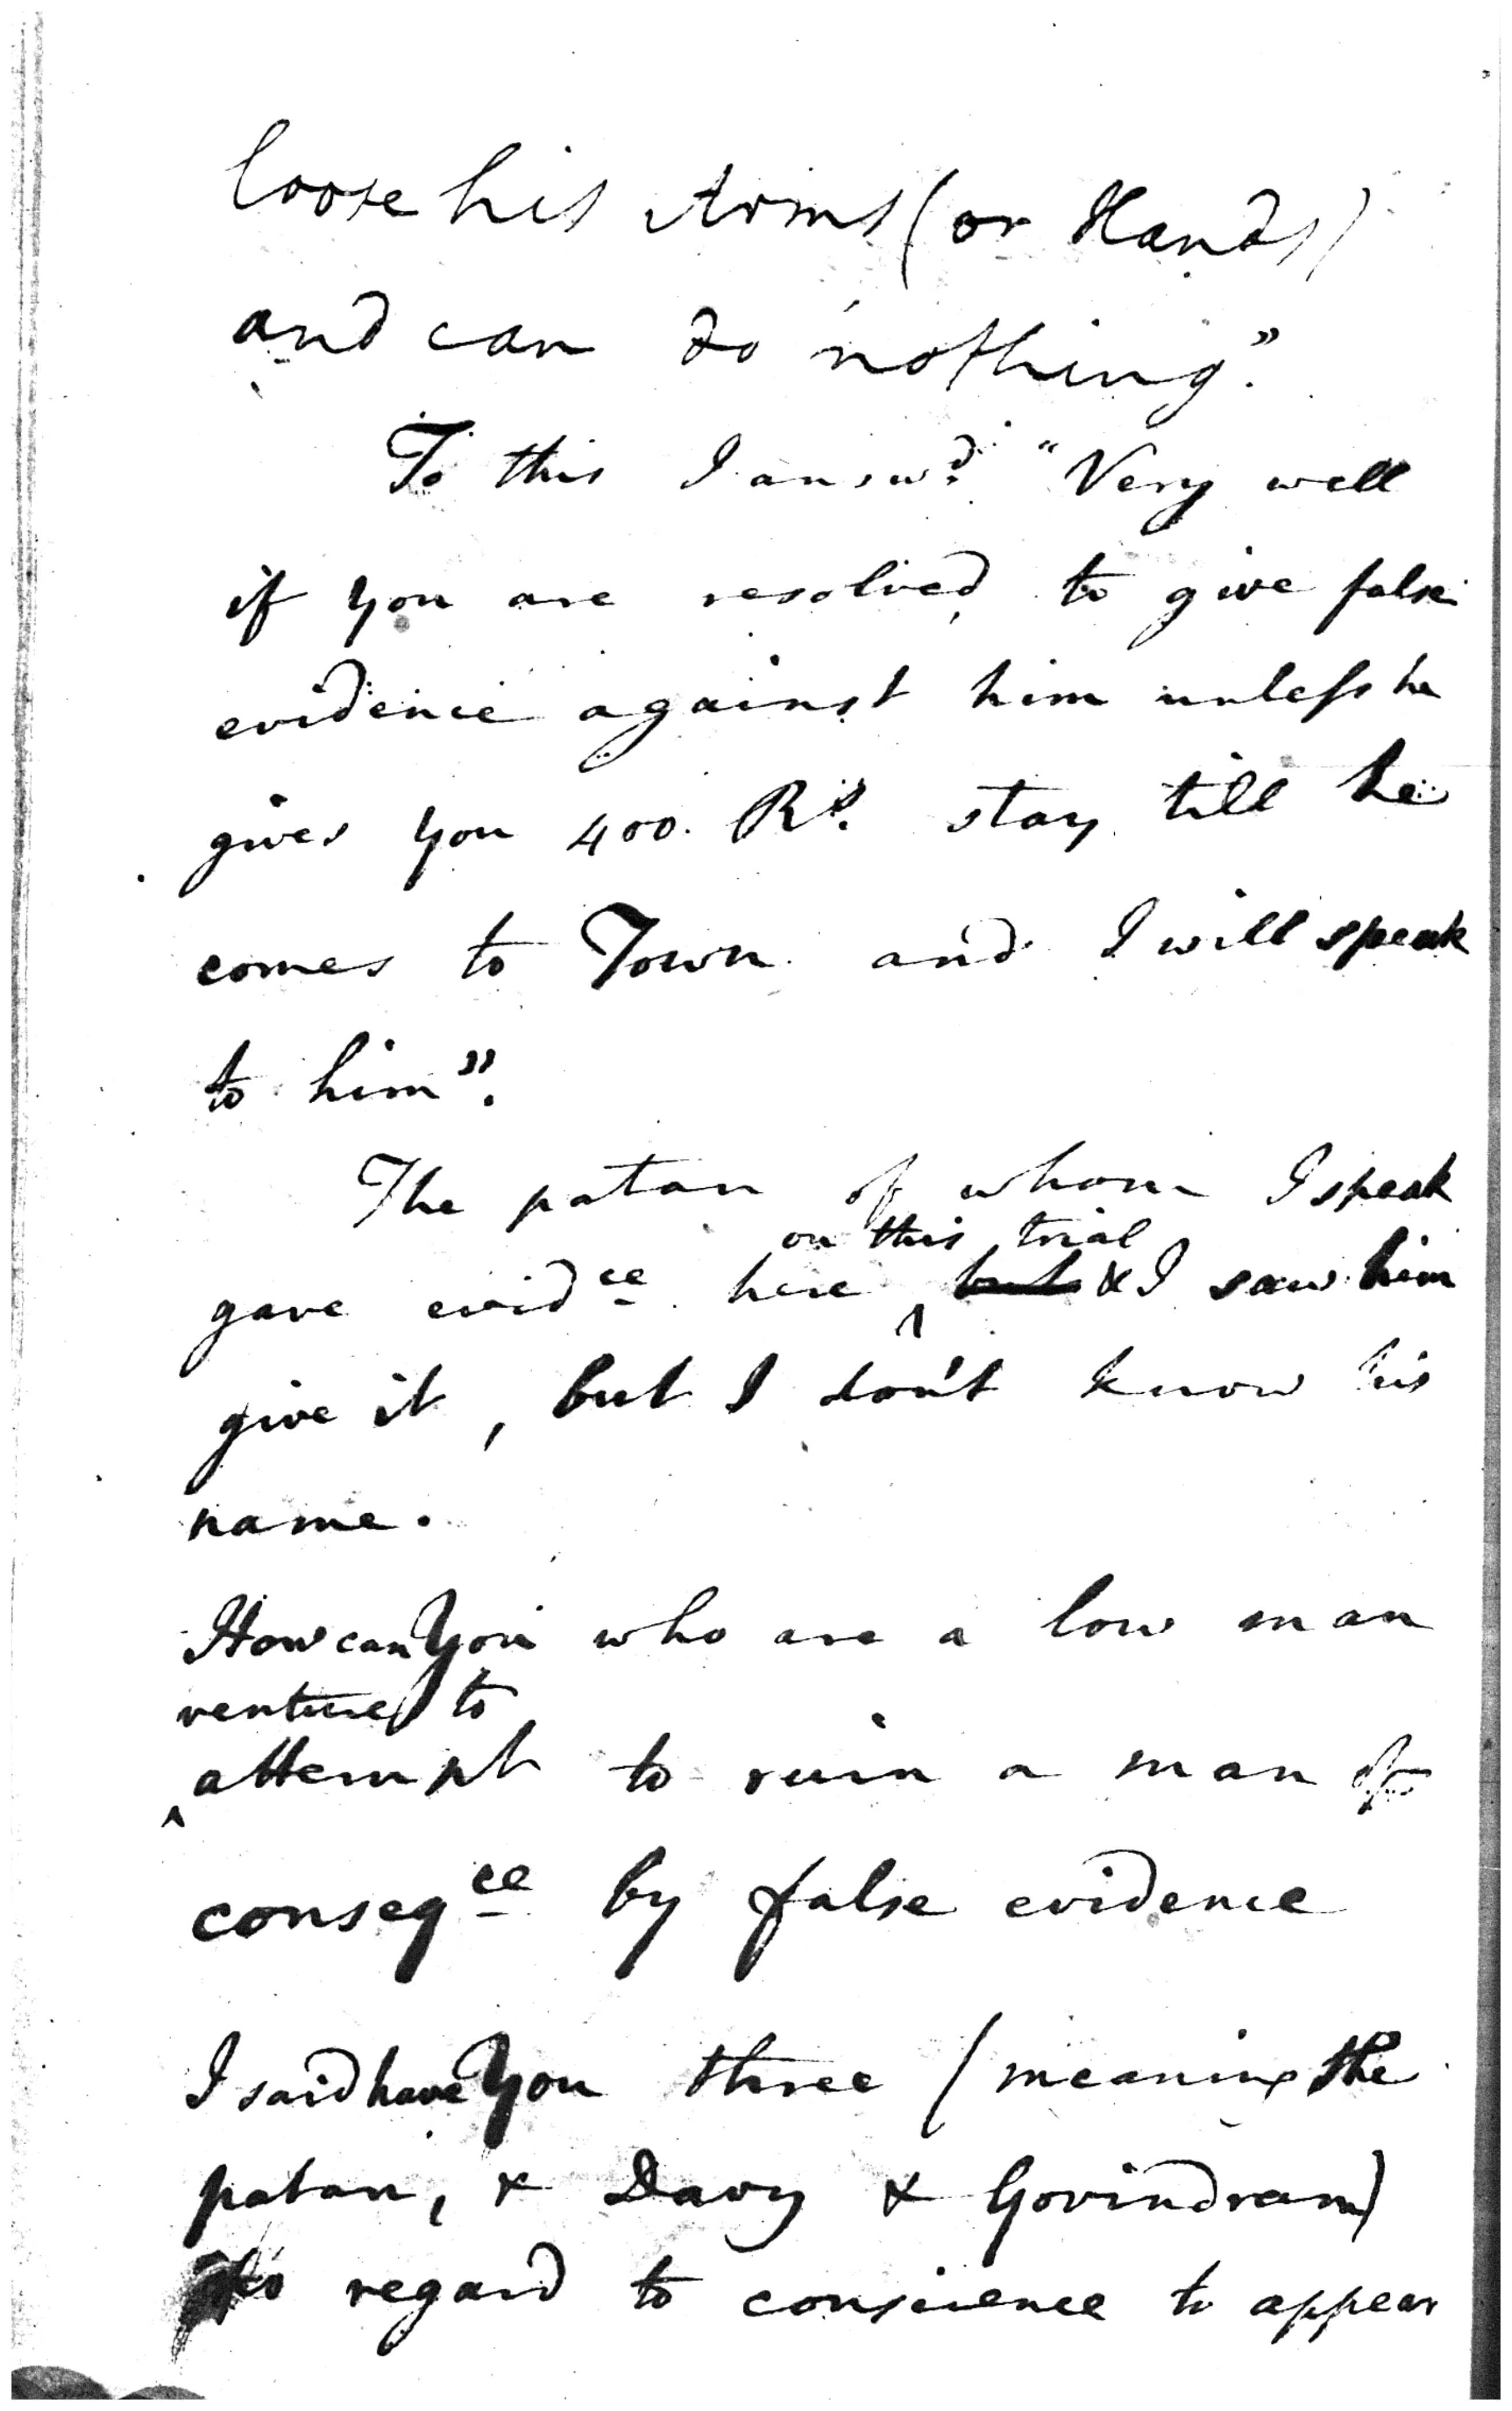 loose his Arms (or Hands)
and can do nothing".
To this I answd. "Very well
if you are resolved to give false
evidence against him unless he
gives you 400. Rs. stay till he
comes to Town and I will speak
to him".
The patan of whom I speak
on this trial
gave evidce here ^ but & I saw him
give it, but I don't know his
name.
How can you who are a low man
venture to
^ attempt to ruin a man of
conseqce by false evidence
I said have you three (meaning the
patan, & Davy & Govindram)
no regard to conscience to appear